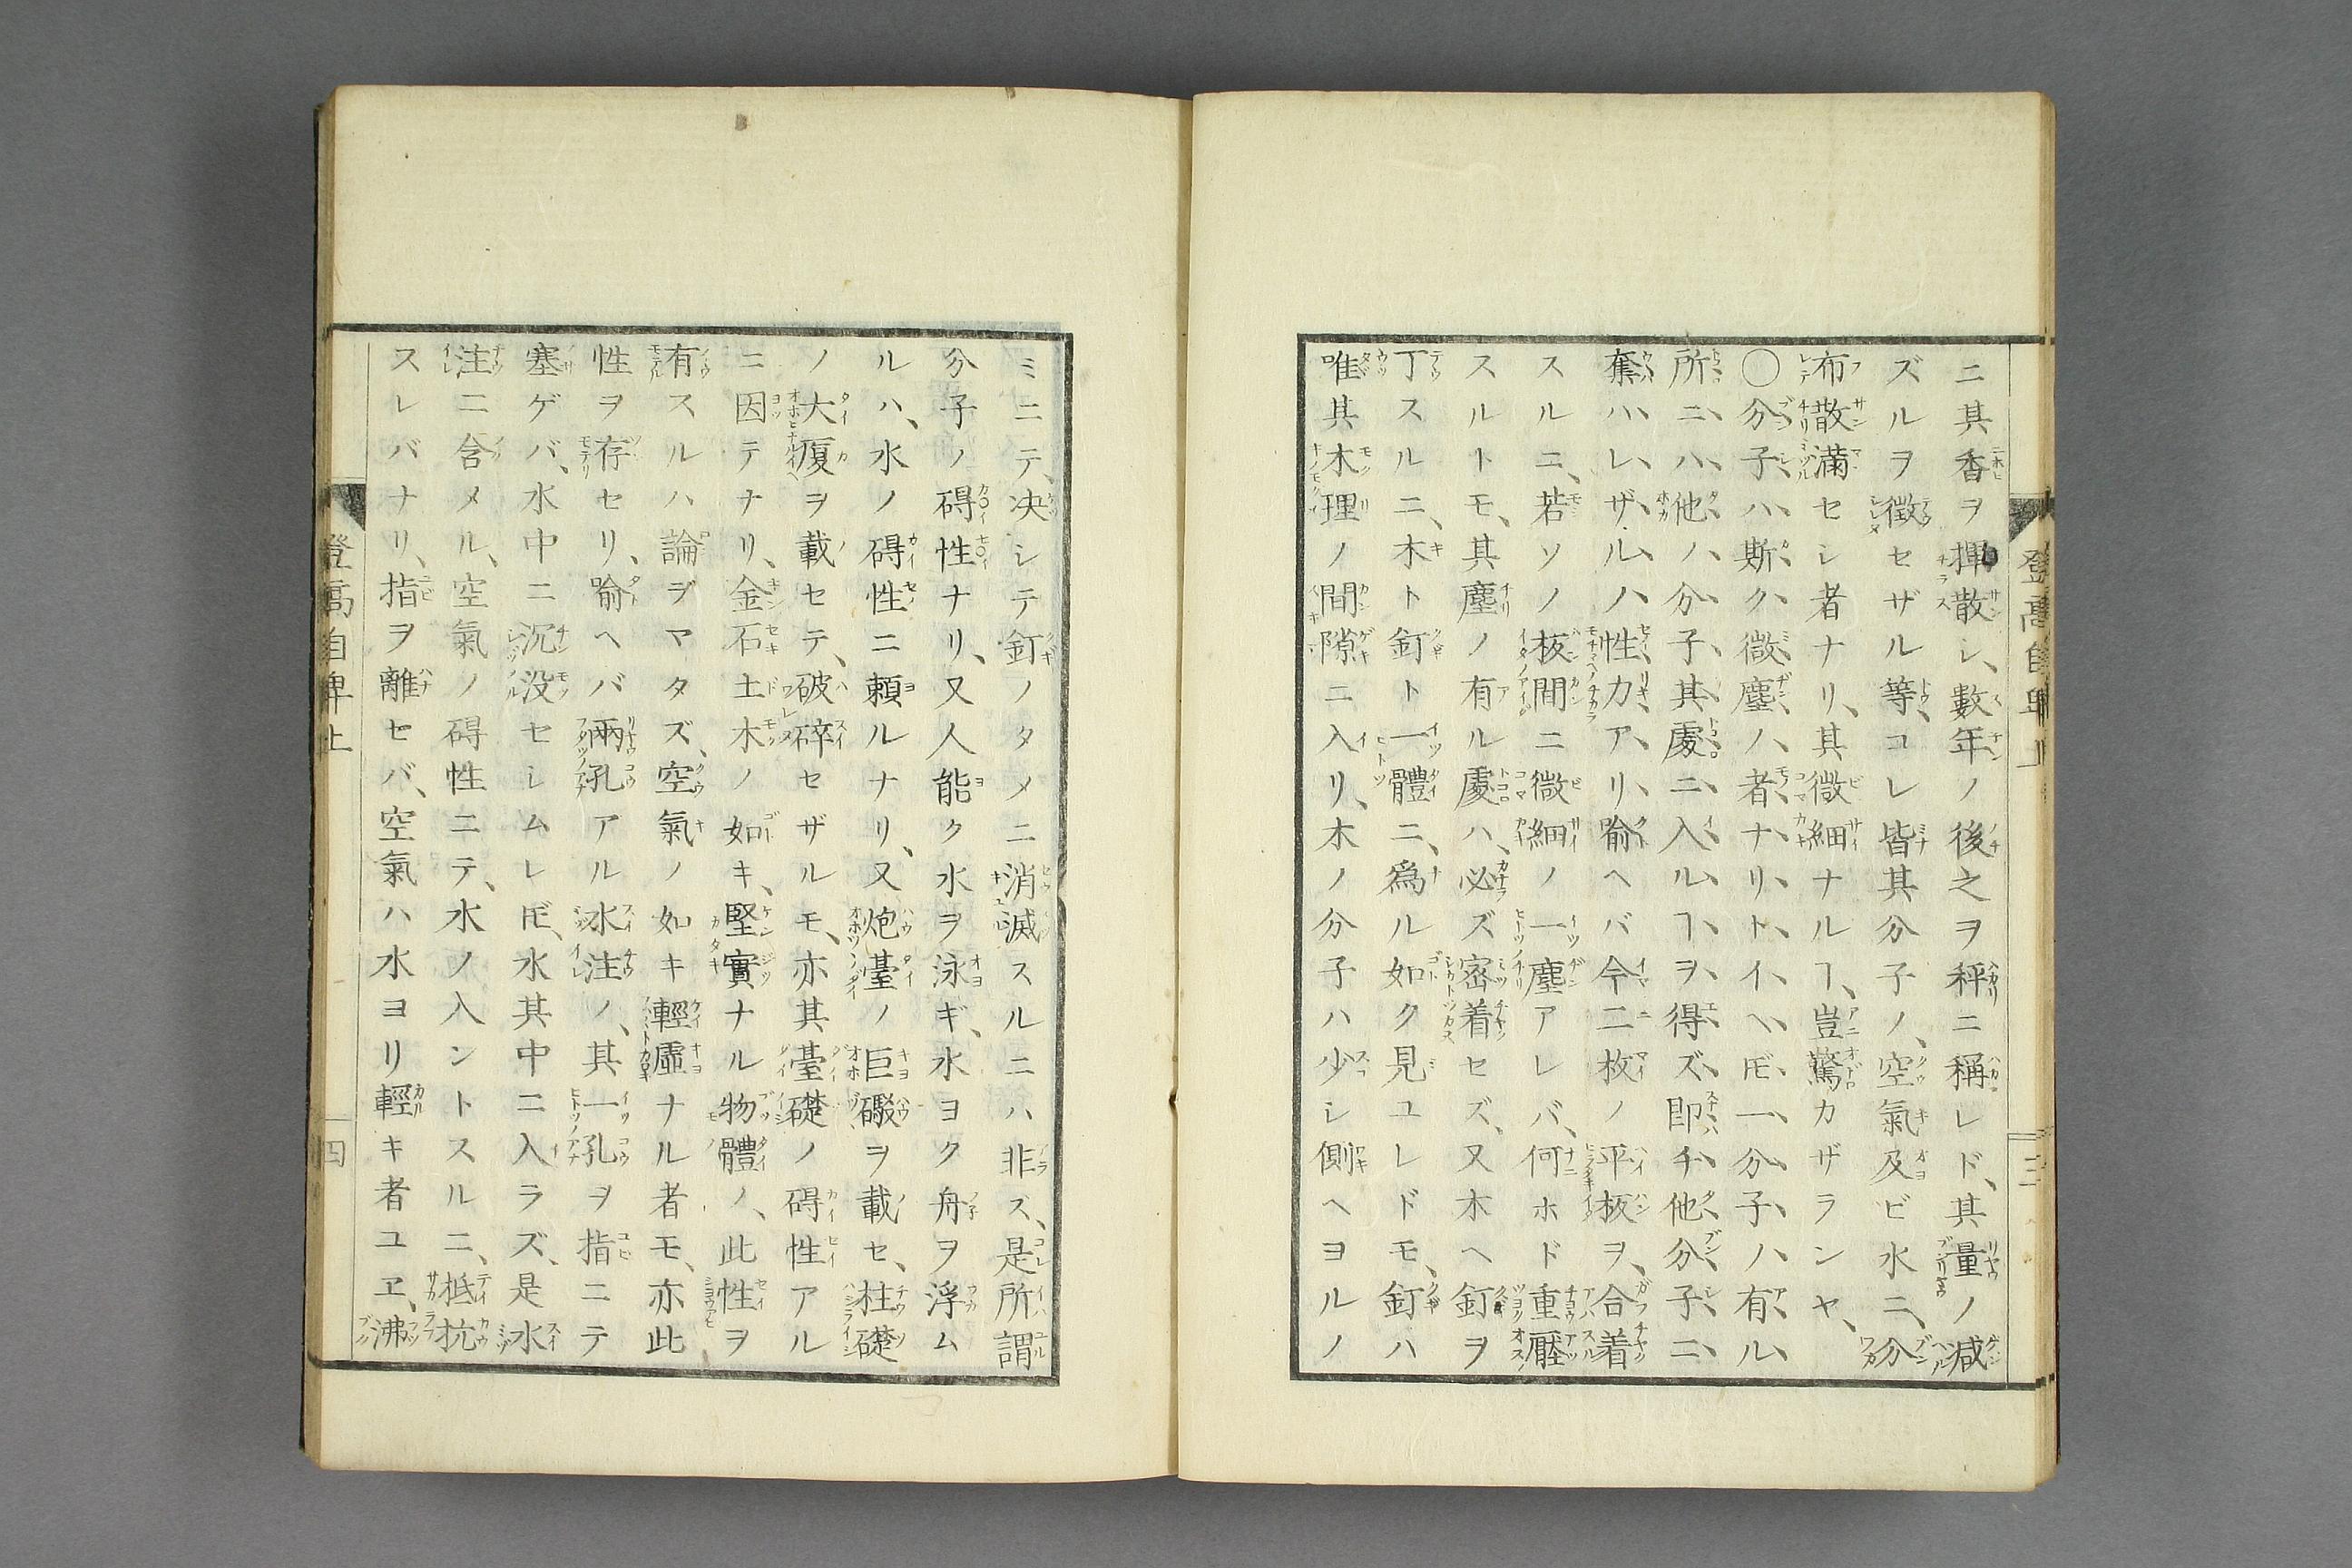 ニ其香ヲ揮散シ、數年ノ後之ヲ秤ニ稱レド、其量ノ減
ズルヲ徴セザル等、コレ皆其分子ノ、空氣及ビ水ニ、分
布散滿セシ者ナリ、其微細ナルヿ、豈驚カザランヤ、
〇分子ハ斯ク微塵ノ者ナリトイヘ𪜈一分子ノ有ル
所ニハ他ノ分子其處ニ入ルヿヲ得ズ即チ他分子ニ
奪ハレザルノ性力アリ喻ヘバ今二枚ノ平板ヲ、合着
スルニ、若ソノ板間ニ微細ノ一塵アレバ、何ホド重壓
スルトモ、其塵ノ有ル處ハ、必ズ密着セズ、又木ヘ釘ヲ
丁スルニ、木ト釘ト一體ニ、爲ル如ク見ユレドモ、釘ハ
唯其木理ノ間隙ニ入リ、木ノ分子ハ少シ側ヘヨルノ
登高自卑上
三
ミニテ、决シテ釘ノタメニ消滅スルニハ非ス、是所謂
分子ノ碍性ナリ、又人能ク水ヲ泳ギ、水ヨク舟ヲ浮ム
ルハ、水ノ碍性ニ頼ルナリ、又炮臺ノ巨礮ヲ載セ、柱礎
ノ大厦ヲ載セテ、破碎セザルモ、亦其臺礎ノ碍性アル
ニ因テナリ、金石土木ノ如キ、堅實ナル物體ノ、此性ヲ
有スルハ論ヲマタズ、空氣ノ如キ輕虛ナル者モ、亦此
性ヲ存セリ、喻ヘバ兩孔アル水注ノ、其一孔ヲ指ニテ
塞ゲバ、水中ニ沉没セシムレ𪜈、水其中ニ入ラズ、是水
注ニ含メル、空氣ノ碍性ニテ、水ノ入ントスルニ、抵抗
スレバナリ、指ヲ離セバ、空氣ハ水ヨリ輕キ者ユヱ、沸
登高自卑上
四